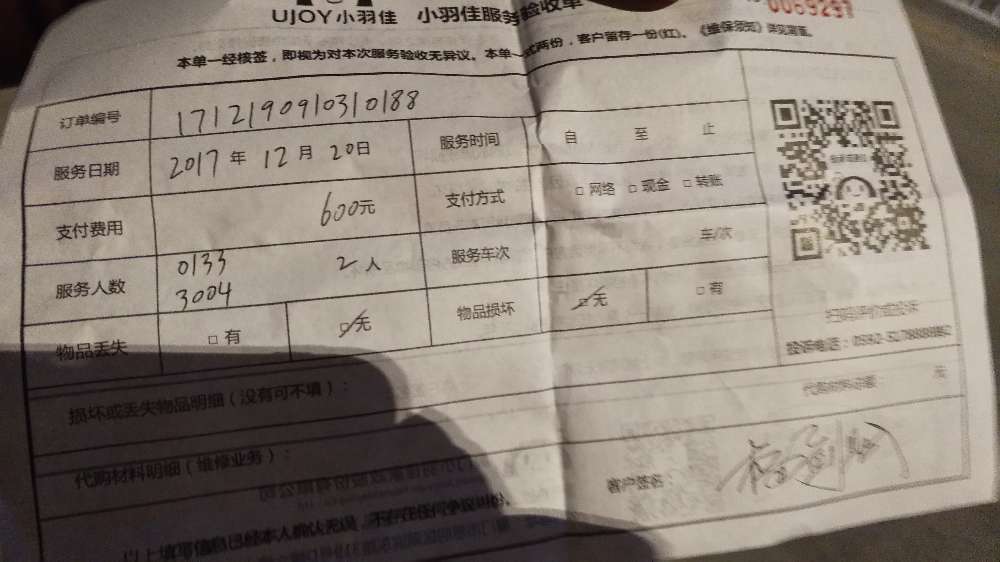 UJOY小羽佳 小羽佳服务验收单
本单一经核签，即视为对本次服务验收无异议。本单一式两份，客户留存一份(红)。《维保须知》详见背面。
订单编号 1712190910310188
服务日期 2017年12月20日 服务时间 自 至 止
支付费用 600元 支付方式 □网络 □现金 □转账
服务人数 0133 3004 2人 服务车次 车/次
物品丢失 □有 □无 物品损坏 □无 □有
扫码评价或投诉
损坏或丢失物品明细（没有可不填）：
代购材料明细（维修业务）： 元
客户签名：
以上填写信息已经本人确认无误，不存在任何争议纠纷。